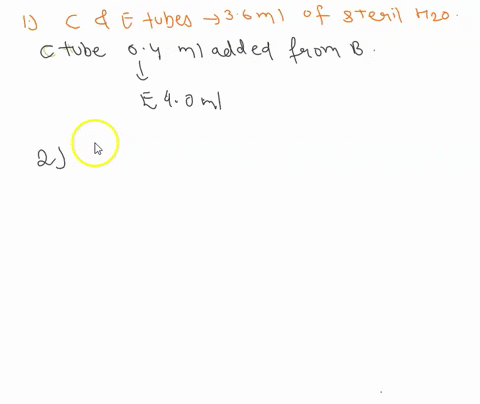 1.) C & E tubes → 3.6ml of steril H2O.
C tube 0.4 ml added from B.
↓
E 4.0 ml
2.)